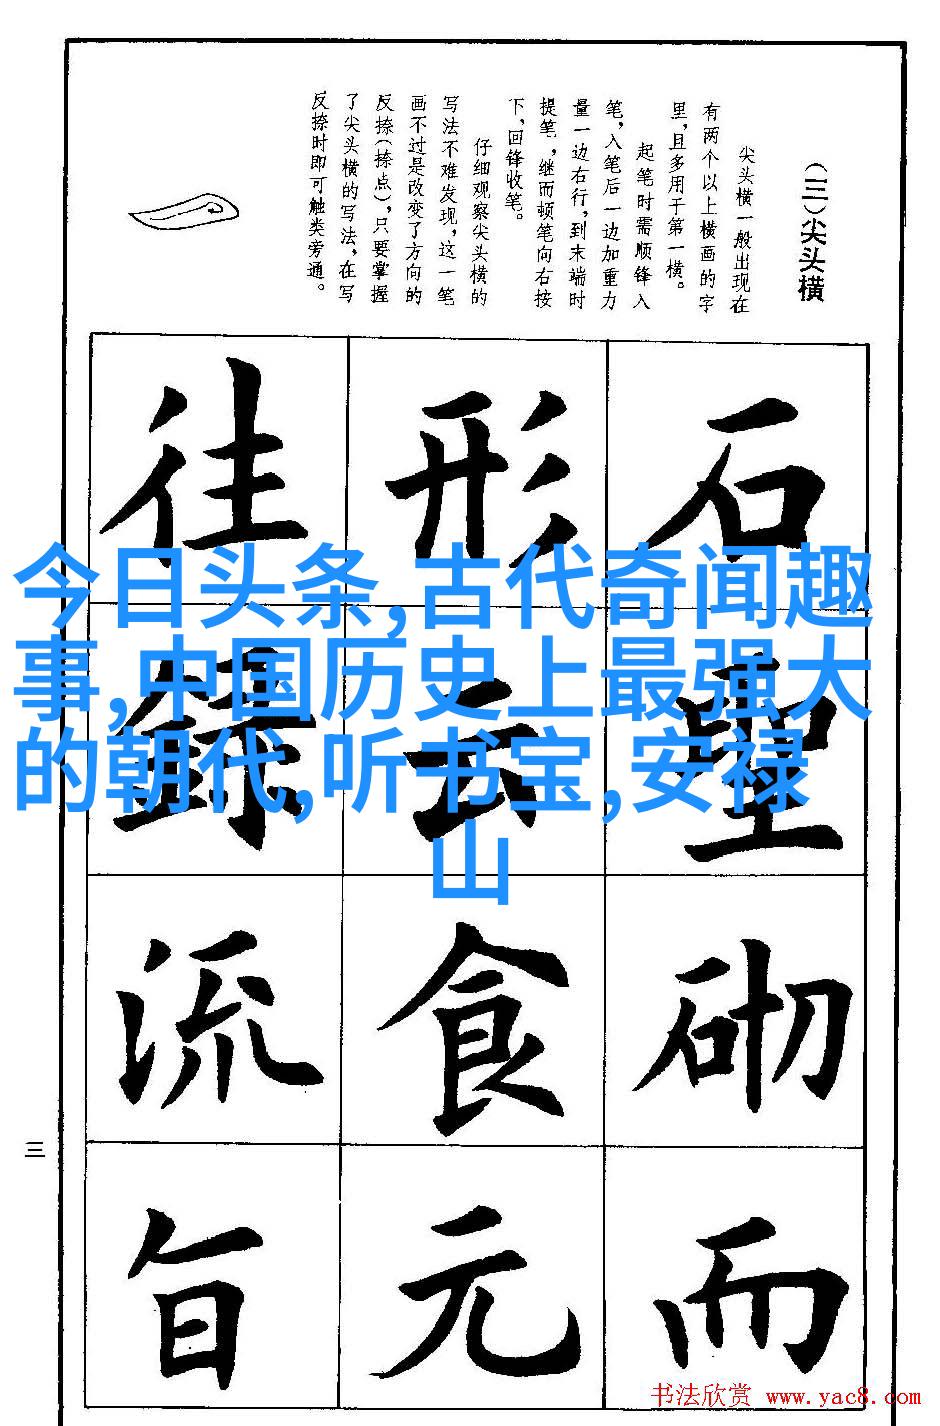 (三)尖头横
尖头横一般出现在
有两个以上横画的字
里,且多用于第一横。
起笔时需顺锋入
笔,入笔后一边加重力
量一边右行,到末端时
提笔,继而顿笔向右按
下,回锋收笔。
仔细观察尖头横的
写法不难发现,这一笔
画不过是改变了方向的
反捺(捺点),只要掌握
了尖头横的写法,在写
反捺时即可触类旁通。
石
聖
砌
而
形
云
食
元
往
録
流
旨
今日头条,古代奇闻趣
事,中国历史上最强大
的朝代,听书宝,安禄
山
三
书法欣赏 www.yac8.com